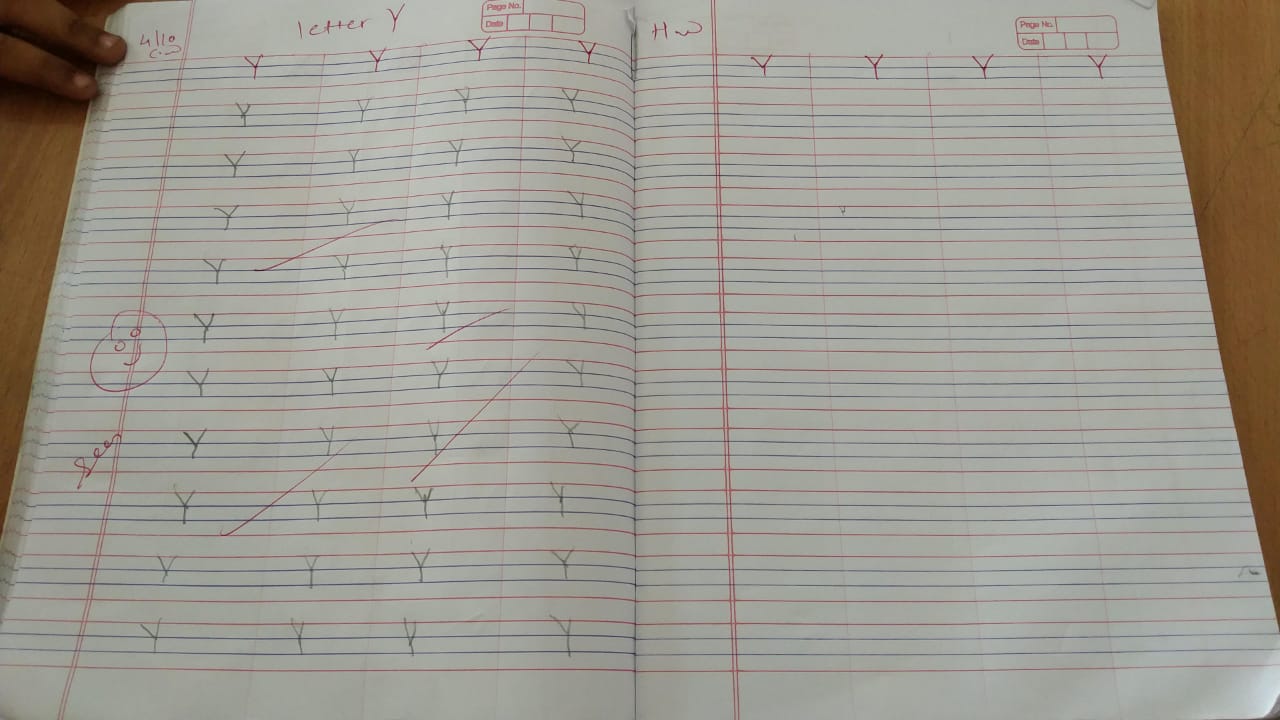 4/10
C.w
letter Y
Page No.
Date
Y Y Y Y
Y Y Y Y
Y Y Y Y
Y Y Y Y
Y Y Y Y
Y Y Y Y
Y Y Y Y
Y Y Y Y
Y Y Y Y
Y Y Y Y
Y Y Y Y
Seen
H.w
Page No.
Date
Y Y Y Y